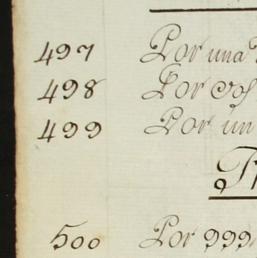 497 Por una
498 Por dos
499 Por un
500 Por